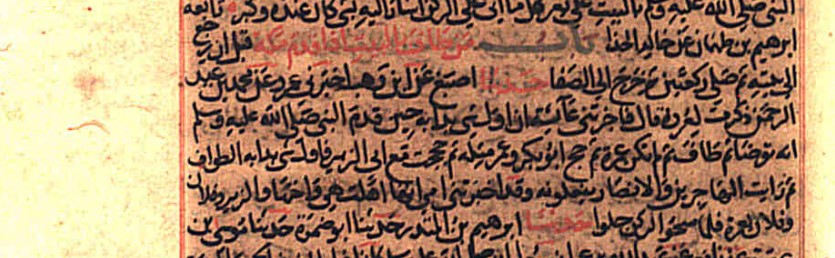 النبي صلى الله عليه وسلم بالبيت على بعير كلما اتى على الركن اشار اليه بشي كان عنده وكبر تابعه
ابرهيم بن طهمان عن خالد الحذا باب من طاف بالبيت اذا قدم مكة قبل ان يرجع
الى بيته ثم صلى ركعتين ثم خرج الى الصفا حدثنا اصبغ عن ابن وهب اخبرني عمرو عن محمد بن عبد
الرحمن ذكرت لعروة قال فاخبرتني عائشة ان اول شي بدا به حين قدم النبي صلى الله عليه وسلم
انه توضا ثم طاف ثم لم تكن عمرة ثم حج ابو بكر وعمر مثله ثم حججت مع ابي الزبير فاول شي بدا به الطواف
ثم رايت المهاجرين والانصار يفعلونه وقد اخبرتني امي انها اهلت هي واختها والزبير وفلان
وفلان بعمرة فلما مسحوا الركن حلوا حدثنا ابرهيم بن المنذر حدثنا ابو ضمرة حدثنا موسى بن